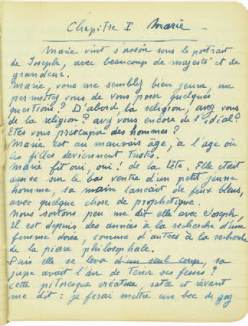 Chapitre I Marie
Marie vint s'assoir sous le portrait
de Joseph, avec beaucoup de majesté et de
grandeur.
Marie, vous me semblez bien jeune, me
permettez vous de vous poser quelques
questions? D'abord la religion, avez vous
de la religion? avez vous encore de l'idéal?
Etes vous préoccupée des hommes?
Marie est au mauvais âge, à l'âge où
les filles deviennent
Marie fit oui, oui! de la tête. Elle était
assise sur le bas ventre d'un petit jeune
homme, sa main lançait de feux bleus,
avec quelque chose de prophétique.
Nous sortons peu me dit elle avec Joseph.
Il est depuis des années à la recherche d'une
femme dorée, comme d'autres à la recherche
de la pierre philosophale.
Puis elle se leva d'un seul coup, sa
jupe avait l'air de tenir ses fesses?
Cette pittoresque créature, resta et
me dit: je ferai mettre un bec de gaz